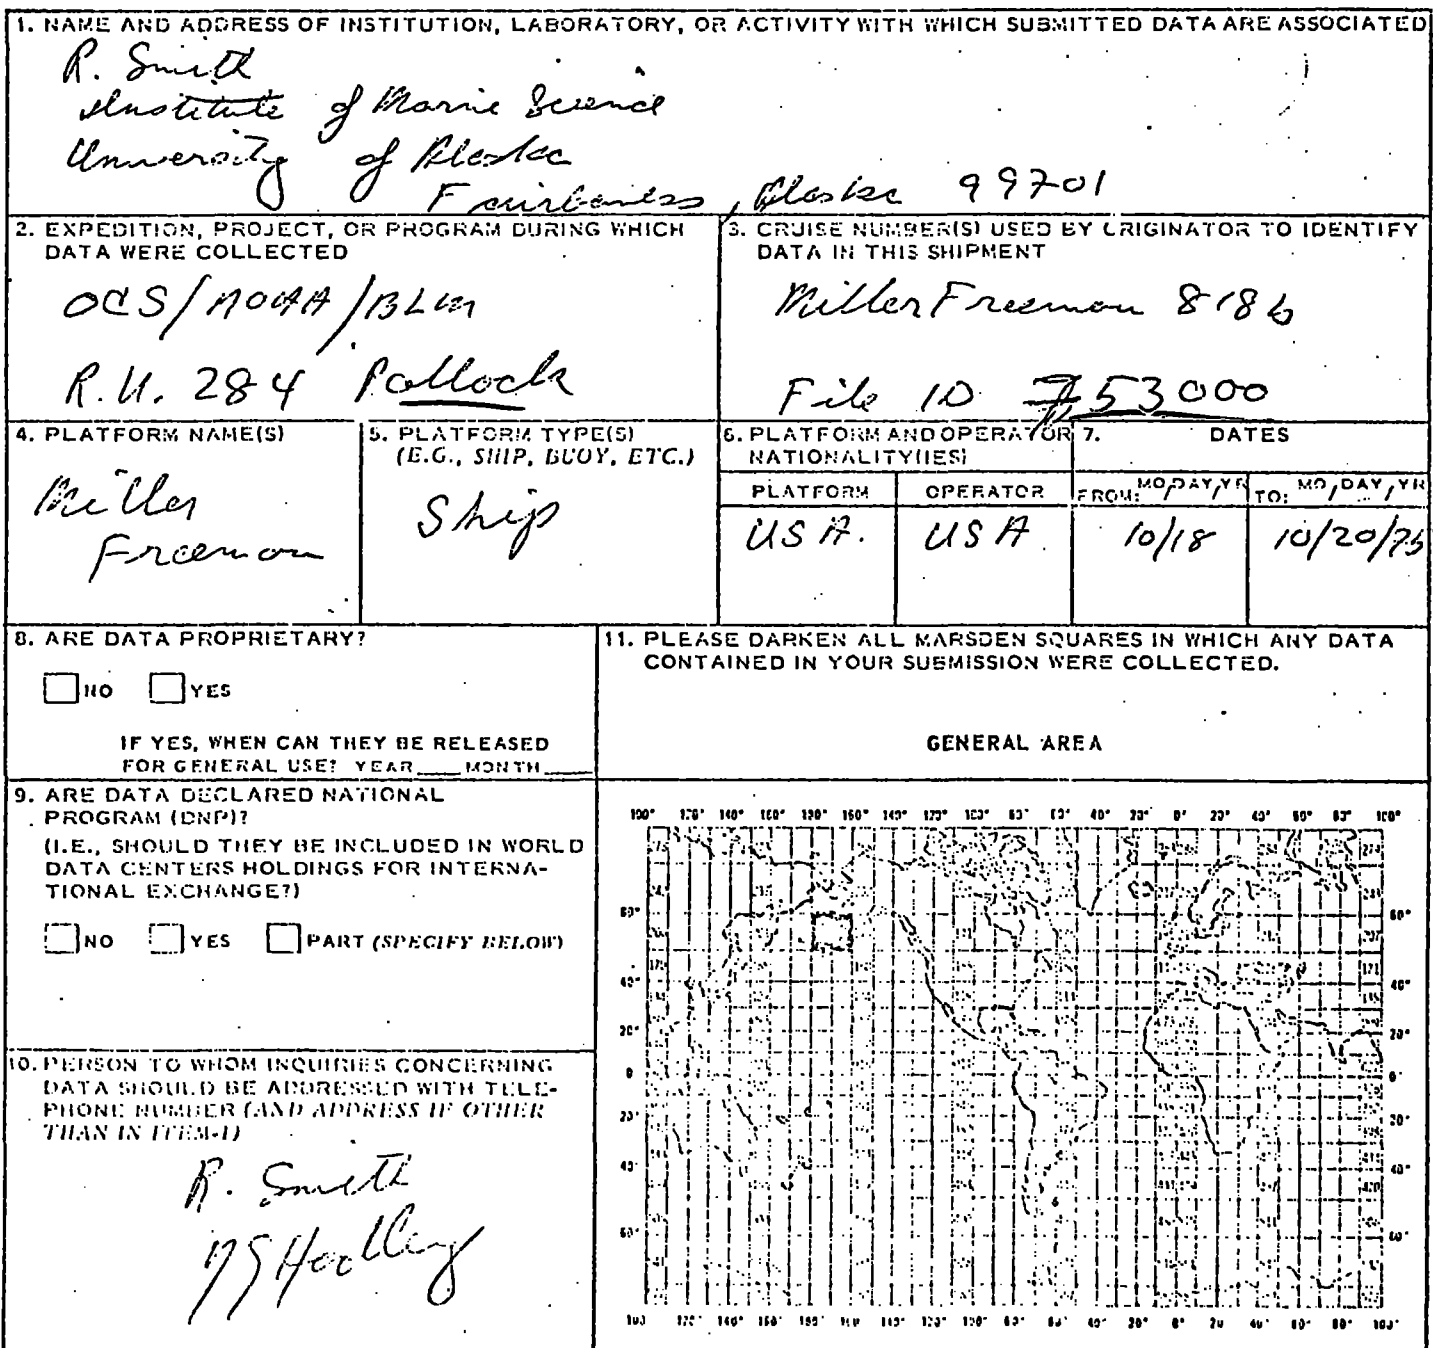 1. NAME AND ADDRESS OF INSTITUTION, LABORATORY, OR ACTIVITY WITH WHICH SUBMITTED DATA ARE ASSOCIATED
R. Smith
Institute of Marine Science
University of Alaska
Fairbanks, Alaska 99701
2. EXPEDITION, PROJECT, OR PROGRAM DURING WHICH
DATA WERE COLLECTED
OCS/NOAA/BLM
R.U. 284 Pollock
3. CRUISE NUMBER(S) USED BY ORIGINATOR TO IDENTIFY
DATA IN THIS SHIPMENT
Miller Freeman 8186
File ID #53000
4. PLATFORM NAME(S)
Miller
Freeman
5. PLATFORM TYPE(S)
(E.G., SHIP, BUOY, ETC.)
Ship
6. PLATFORM AND OPERATOR
NATIONALITY(IES)
PLATFORM OPERATOR
USA. USA
7. DATES
FROM: MO/DAY/YR TO: MO/DAY/YR
10/18 10/20/75
8. ARE DATA PROPRIETARY?
NO YES
IF YES, WHEN CAN THEY BE RELEASED
FOR GENERAL USE? YEAR MONTH
9. ARE DATA DECLARED NATIONAL
PROGRAM (DNP)?
(I.E., SHOULD THEY BE INCLUDED IN WORLD
DATA CENTERS HOLDINGS FOR INTERNA-
TIONAL EXCHANGE?)
NO YES PART (SPECIFY BELOW)
10. PERSON TO WHOM INQUIRIES CONCERNING
DATA SHOULD BE ADDRESSED WITH TELE-
PHONE NUMBER (AND ADDRESS IF OTHER
THAN IN ITEM-1)
R. Smith
11. PLEASE DARKEN ALL MARSDEN SQUARES IN WHICH ANY DATA
CONTAINED IN YOUR SUBMISSION WERE COLLECTED.
GENERAL AREA
100° 120° 140° 160° 180° 160° 140° 120° 100° 80° 60° 40° 20° 0° 20° 40° 60° 80° 100°
60° 60°
40° 40°
20° 20°
0° 0°
20° 20°
40° 40°
60° 60°
100° 120° 140° 160° 180° 160° 140° 120° 100° 80° 60° 40° 20° 0° 20° 40° 60° 80° 100°